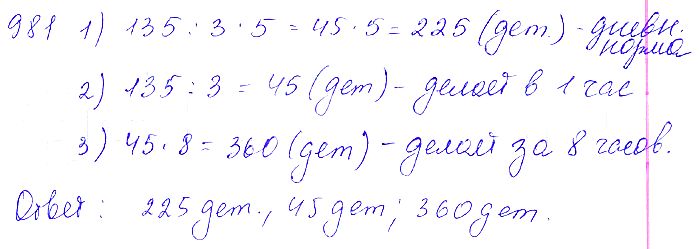 981 1) 135 : 3 · 5 = 45 · 5 = 225 (дет.) - дневн. норма
2) 135 : 3 = 45 (дет) - делает в 1 час
3) 45 · 8 = 360 (дет) - делает за 8 часов.
Ответ: 225 дет., 45 дет; 360 дет.